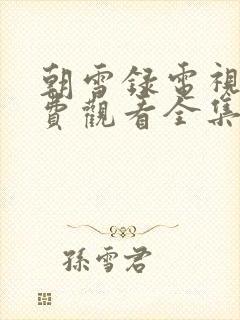 朝雪録電視
費觀看全集
孫雪君